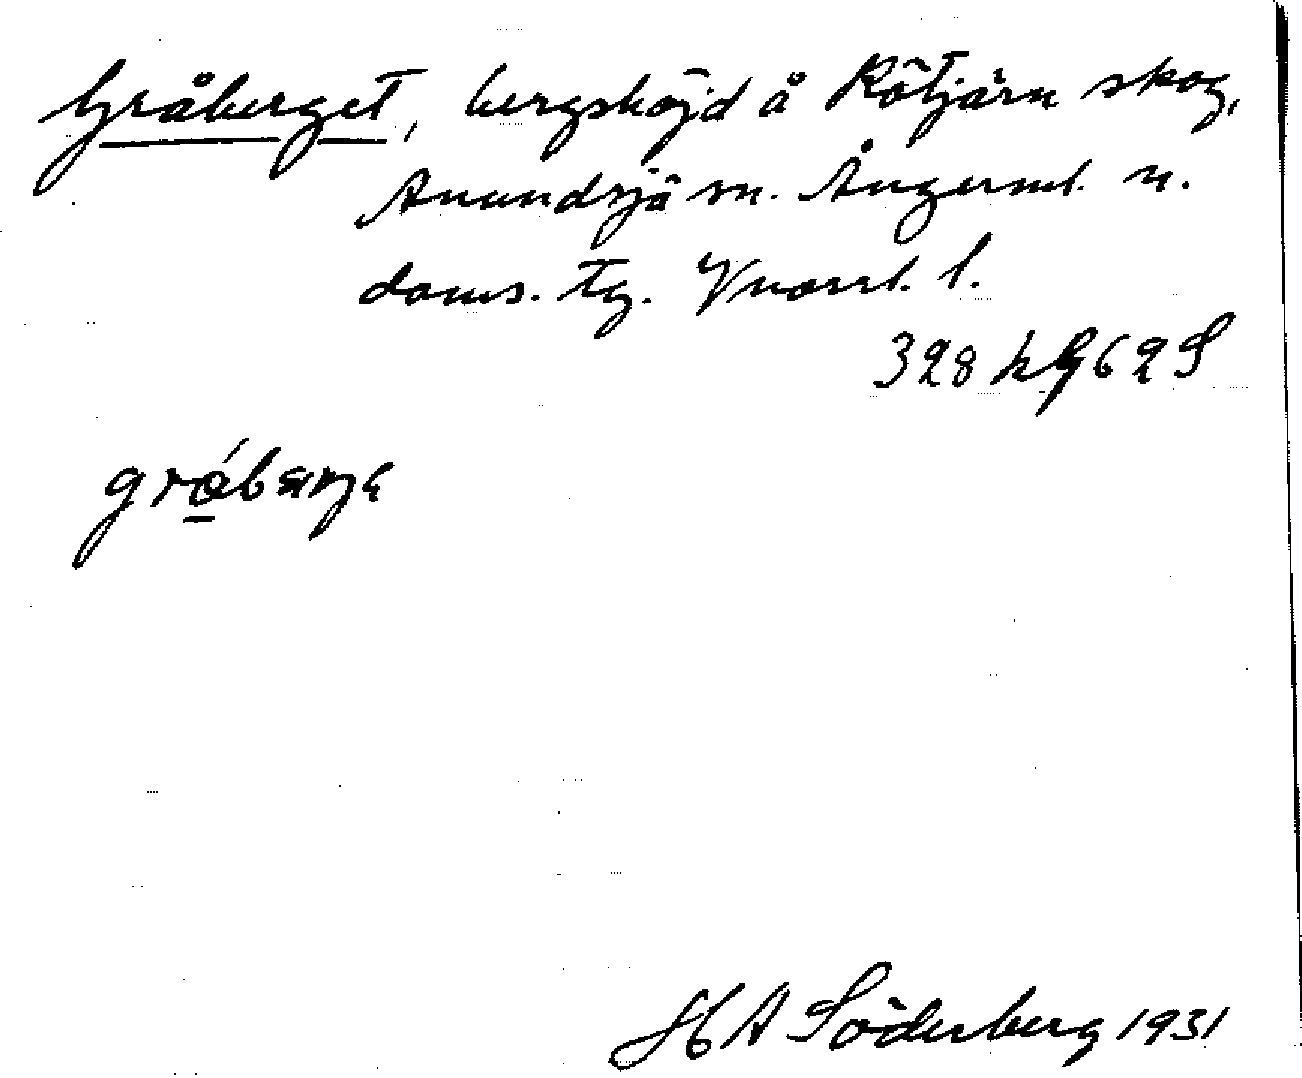 Gråberget, bergshöjd å Rötjärn skog,
Anundsjö sn. Ångerml. n.
doms. tg. Vnorrl. l.
328 h 9629
grǻbærjɛ
HA Söderberg 1931